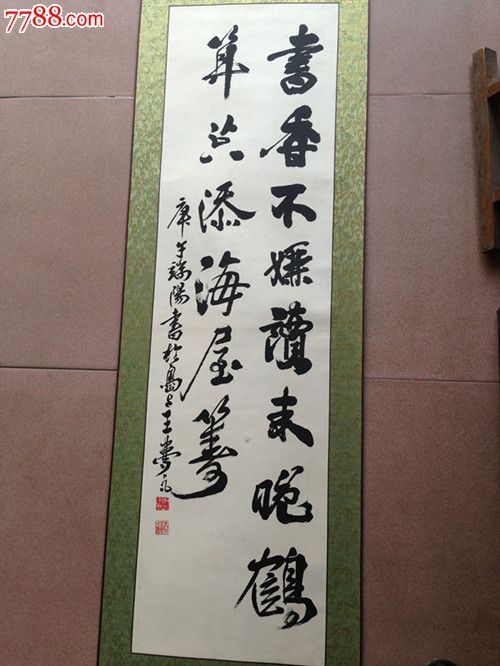 7788.com
書香不嫌讀未晚鶴
算共添海屋籌
庚午端陽書於島上王夢凡